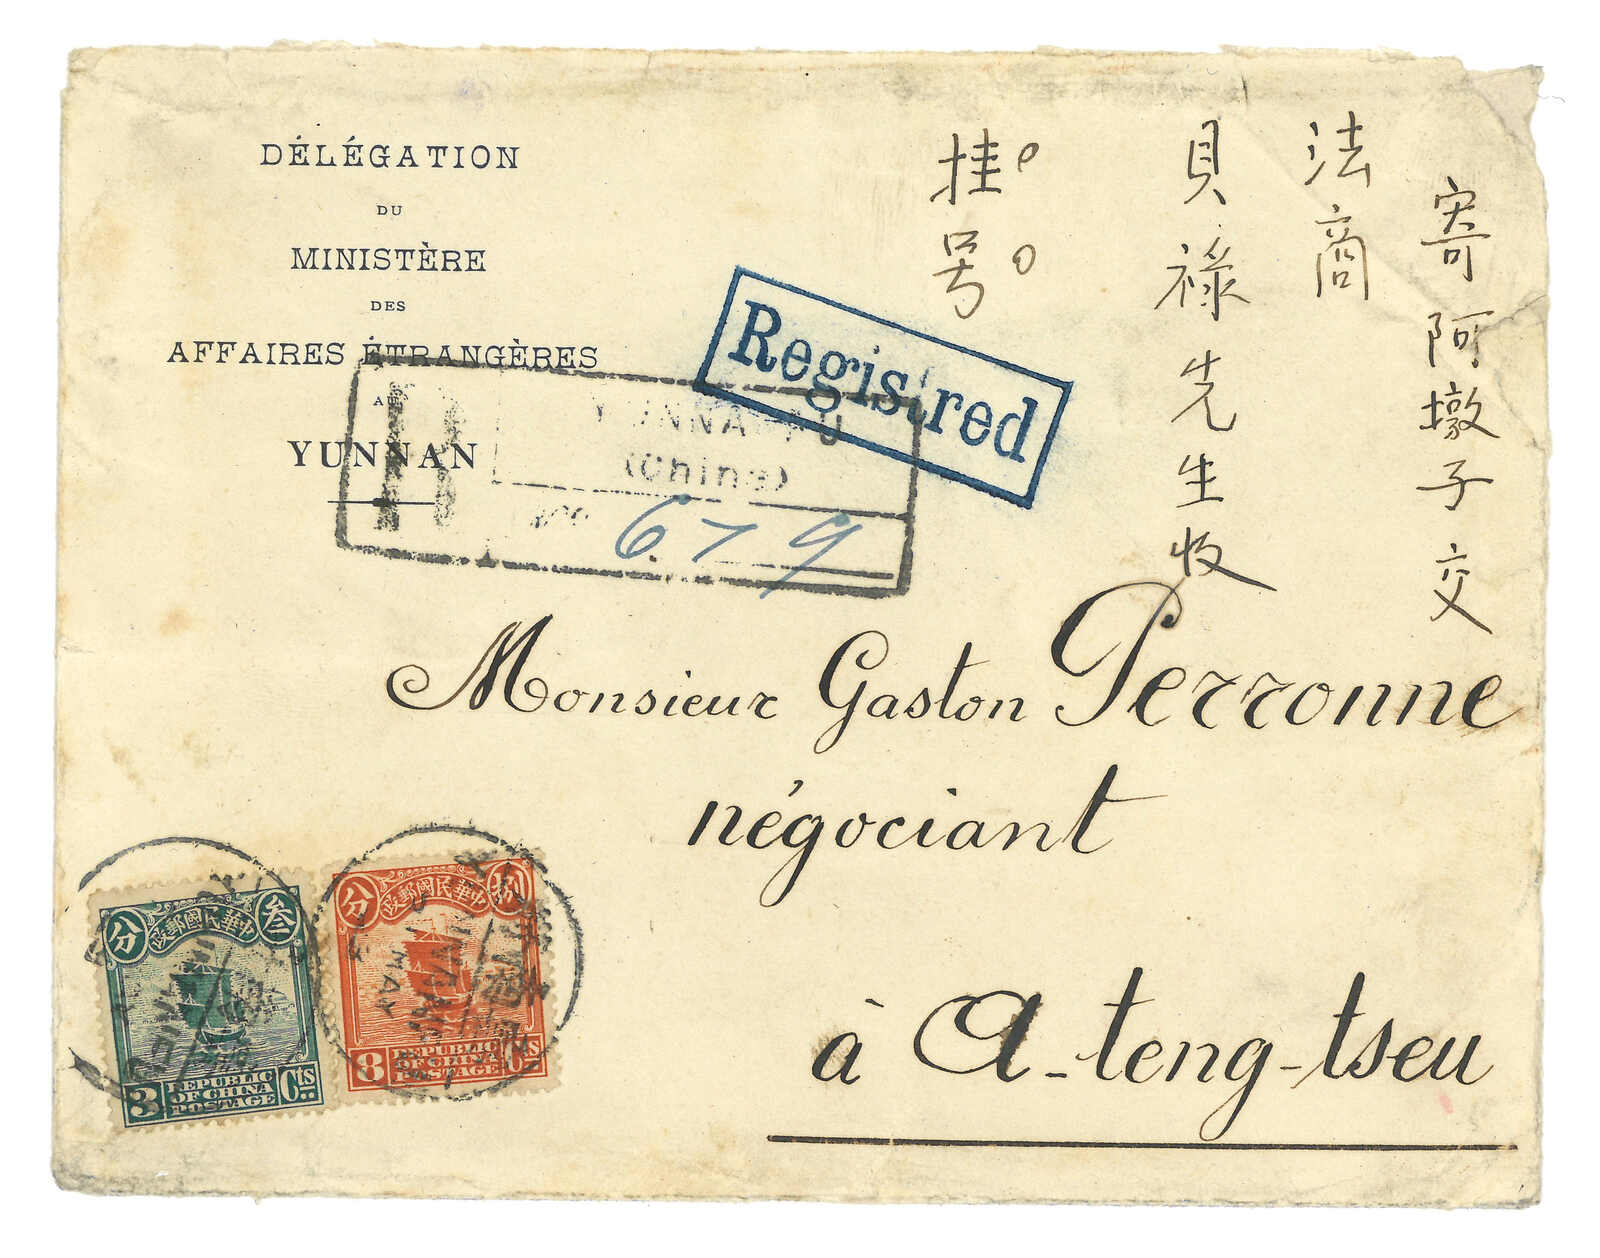 DÉLÉGATION
DU
MINISTÈRE
DES
AFFAIRES ÉTRANGÈRES
AU
YUNNAN
寄阿墩子交
法商
貝祿先生收
挂号
Registred
R
YUNNANFU
(Chine)
679
Monsieur Gaston Perronne
négociant
à A-teng-tseu
分 叁
中華民國郵政
3 REPUBLIC OF CHINA POSTAGE Cts
分 捌
中華民國郵政
8 REPUBLIC OF CHINA POSTAGE Cts
MAY